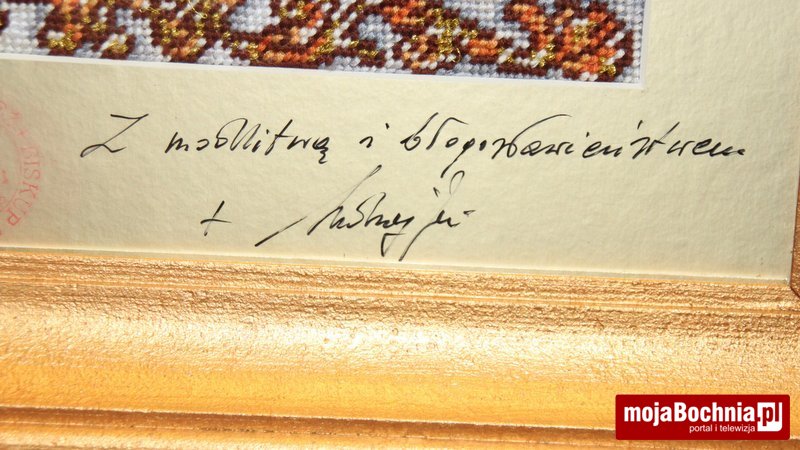 Z modlitwą i błogosławieństwem
+ Andrzej Jeż
BISKUP
mojaBochnia.pl
portal i telewizja